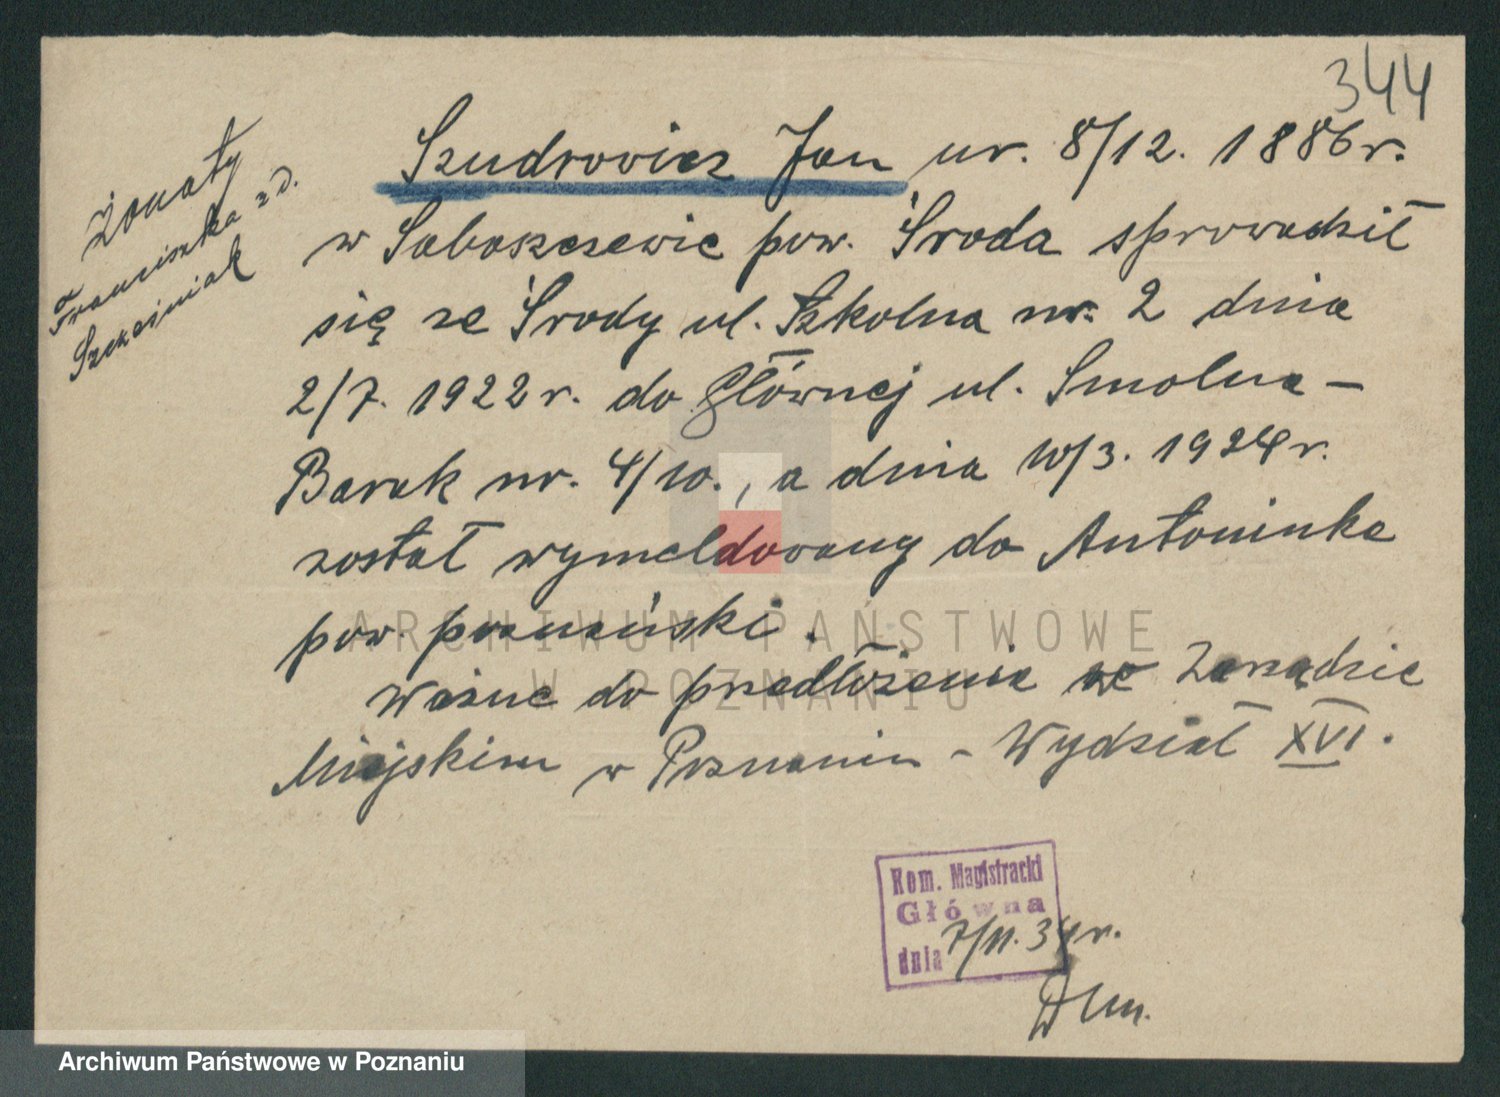 344
Szudrowicz Jan ur. 8/12. 1886 r.
w Sabaszczewie pow. Środa sprowadził
się ze Środy ul. Szkolna nr. 2 dnia
2/7. 1922 r. do Głównej ul. Smolna -
Barak nr. 4/10., a dnia 10/3. 1924 r.
został wymeldowany do Antoninka
pow. poznański.
Ważne do przedłożenia w Zarządzie
Miejskim w Poznaniu - Wydział XVI.
Żonaty
Franciszka z d.
Szcześniak
Kom. Magistracki
Główna
dnia 7/11. 34 r.
ARCHIWUM PAŃSTWOWE
W POZNANIU
Archiwum Państwowe w Poznaniu